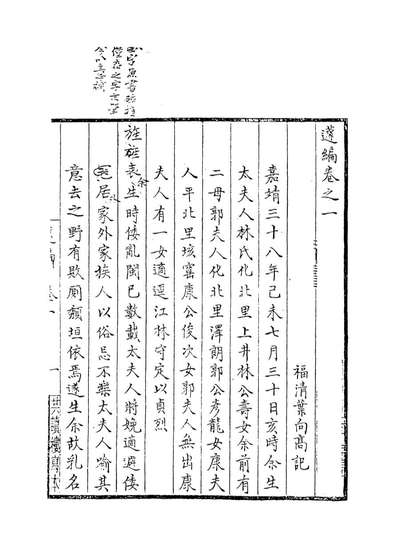 蘧編卷之一
福清葉向高記
嘉靖三十八年己未七月三十日亥時余生
太夫人林氏化北里上井林公壽女余前有
二母郭夫人化北里澤朗郭公彥龍女康夫
人平北里垓窰康公俊次女郭夫人無出康
夫人有一女適逕江林守定以貞烈
旌旌表余生時倭亂閩已數載太夫人將娩適避倭
居家外家族人以俗忌不樂太夫人喻其
意去之野有敗廁頹垣依焉遂生余故乳名